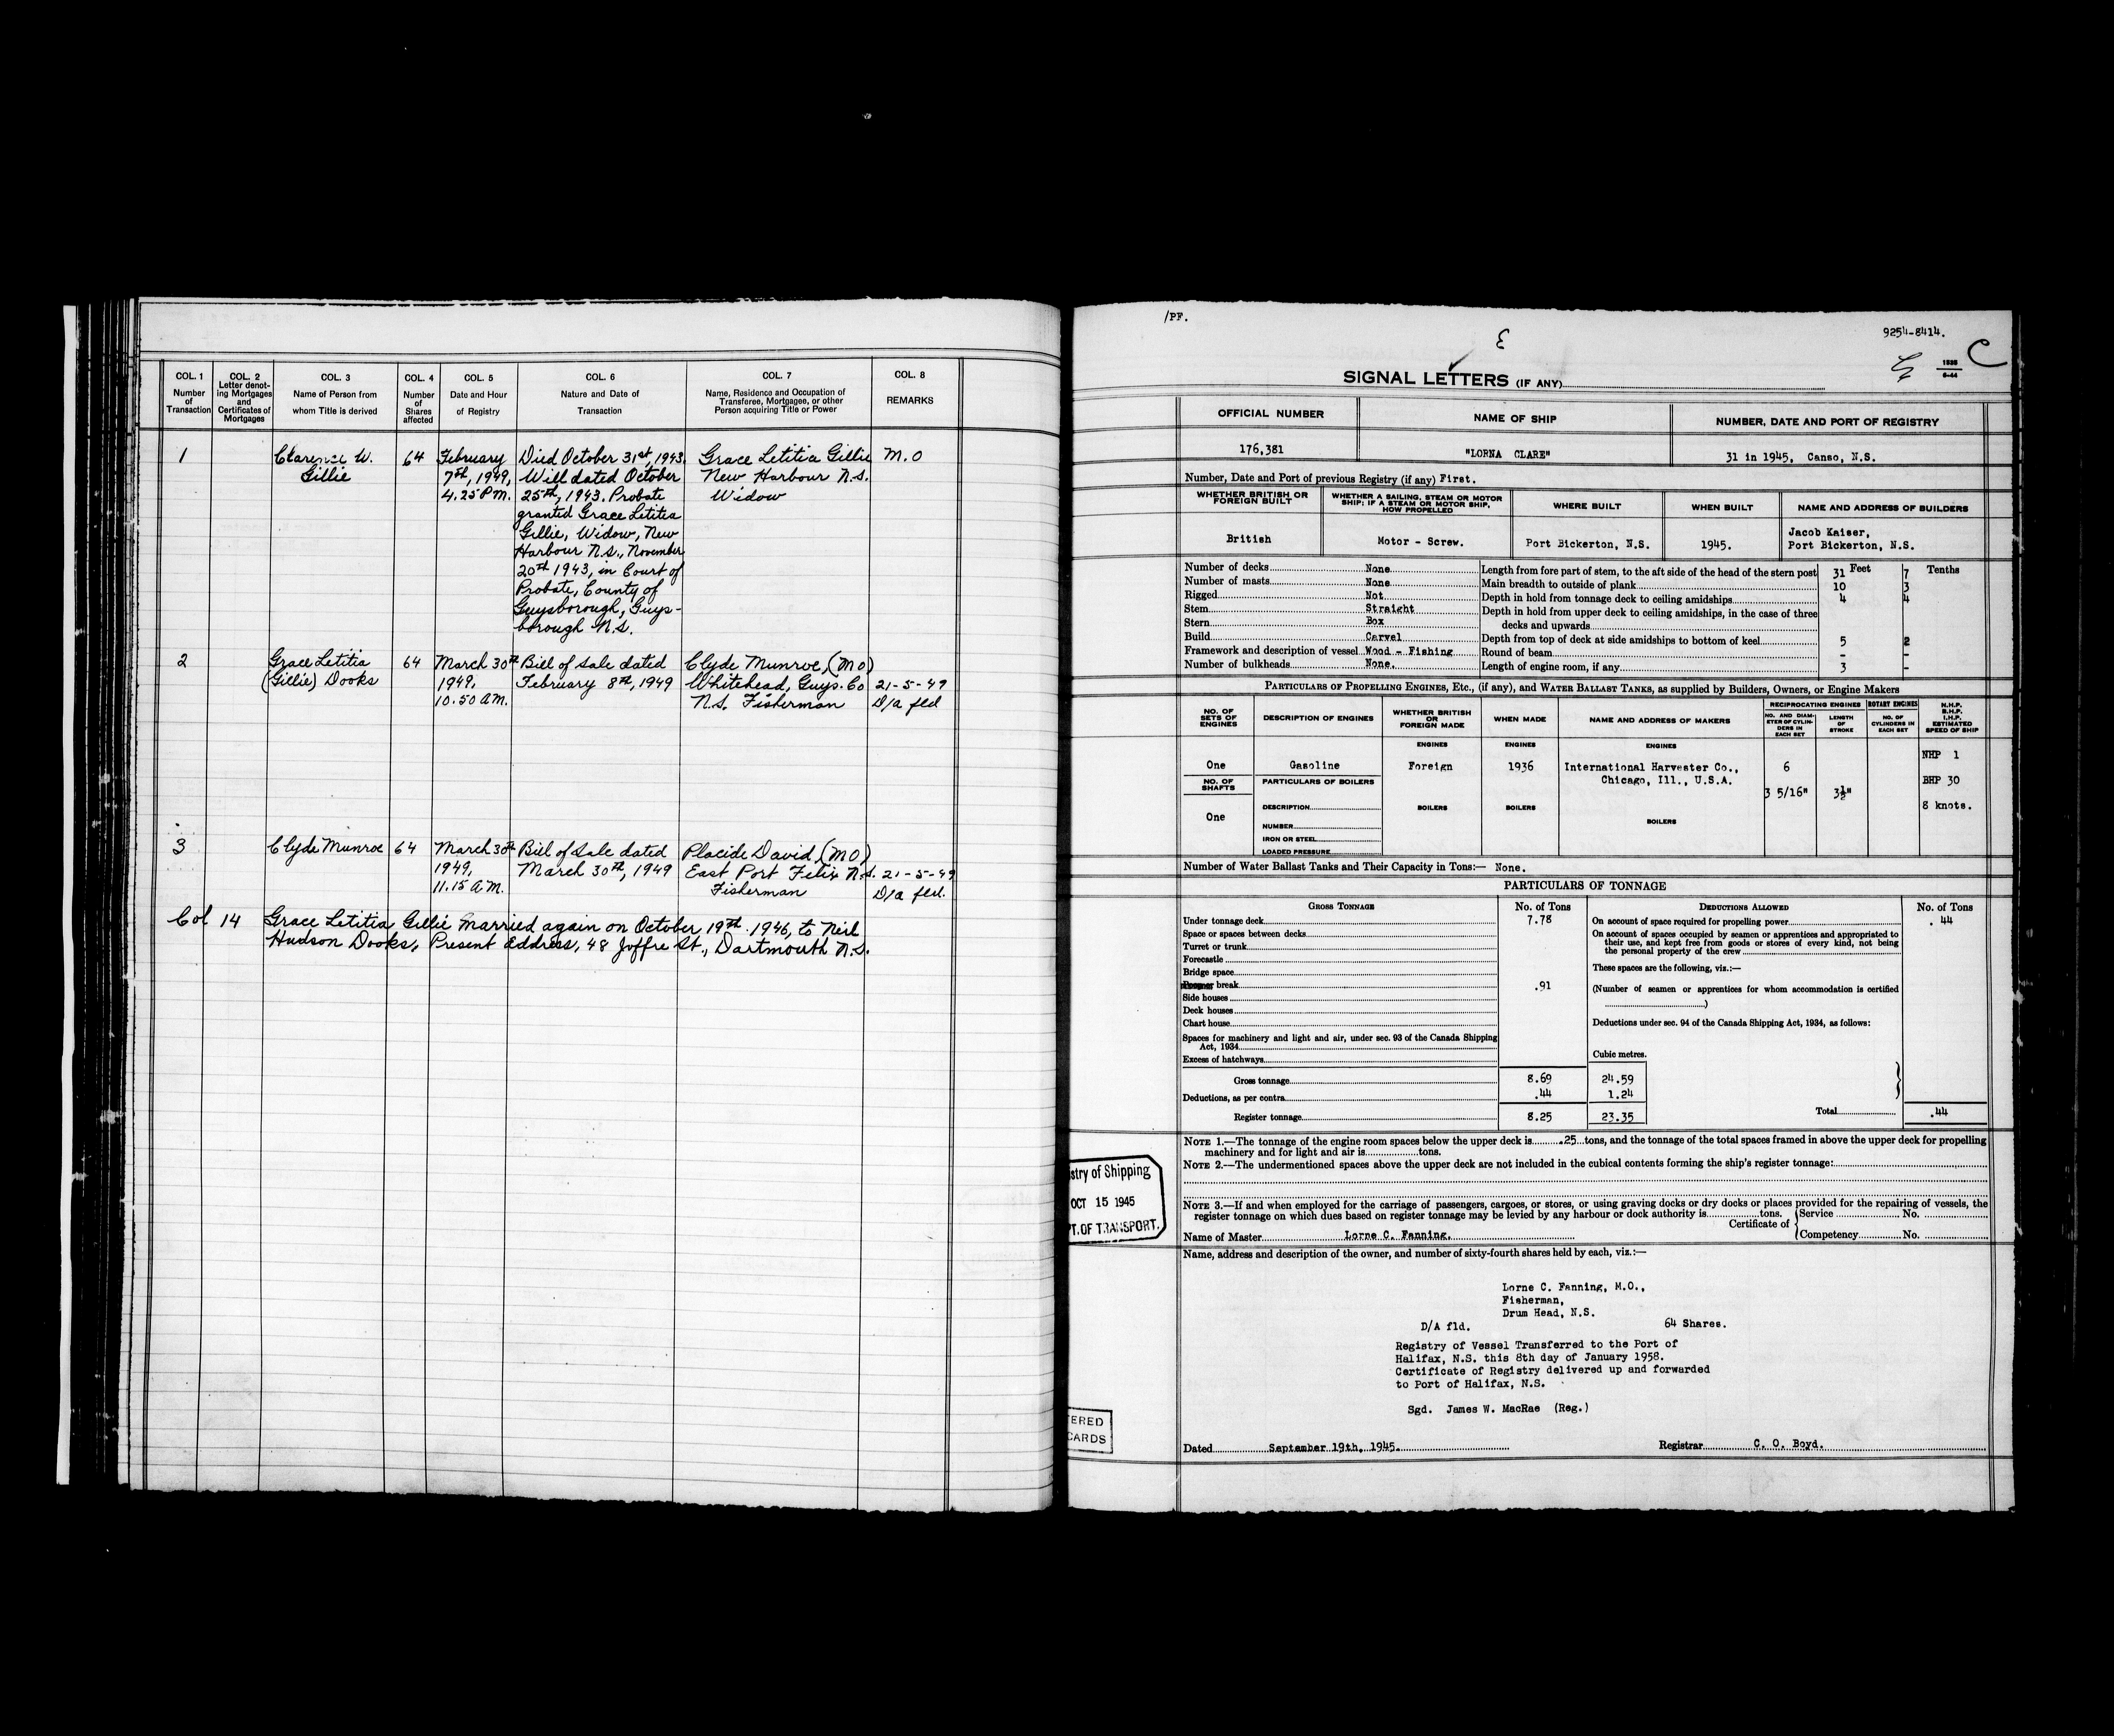 COL. 1
Number
of
Transaction
COL. 2
Letter denot-
ing Mortgages
and
Certificates of
Mortgages
COL. 3
Name of Person from
whom Title is derived
COL. 4
Number
of
Shares
affected
COL. 5
Date and Hour
of Registry
COL. 6
Nature and Date of
Transaction
COL. 7
Name, Residence and Occupation of
Transferee, Mortgagee, or other
Person acquiring Title or Power
COL. 8
REMARKS
1
Clarence W.
Gillie
64
February
7th, 1949,
4.25 P.M.
Died October 31st, 1943.
Will dated October
25th, 1943. Probate
granted Grace Letitia
Gillie, Widow, New
Harbour N.S., November
20th 1943, in Court of
Probate, County of
Guysborough, Guys-
borough N.S.
Grace Letitia Gillie
New Harbour N.S.
Widow
M.O
2
Grace Letitia
(Gillie) Dooks
64
March 30th
1949,
10.50 A.M.
Bill of Sale dated
February 8th, 1949
Clyde Munroe, (MO)
Whitehead, Guys. Co
N.S. Fisherman
21-5-49
D/a fld
3
Clyde Munroe
64
March 30th
1949,
11.15 A.M.
Bill of Sale dated
March 30th, 1949
Placide David, (MO)
East Port Felix N.S.
Fisherman
21-5-49
D/a fld.
Col 14 Grace Letitia Gillie Married again on October 19th 1946, to Neil
Hudson Dooks, Present Address, 48 Joffre St., Dartmouth N.S.
/PF.
9254-8414.
C
SIGNAL LETTERS (IF ANY)
OFFICIAL NUMBER
NAME OF SHIP
NUMBER, DATE AND PORT OF REGISTRY
176,381
"LORNA CLARE"
31 in 1945, Canso, N.S.
Number, Date and Port of previous Registry (if any) First.
WHETHER BRITISH OR
FOREIGN BUILT
WHETHER A SAILING, STEAM OR MOTOR
SHIP; IF A STEAM OR MOTOR SHIP,
HOW PROPELLED
WHERE BUILT
WHEN BUILT
NAME AND ADDRESS OF BUILDERS
British
Motor - Screw.
Port Bickerton, N.S.
1945.
Jacob Kaiser,
Port Bickerton, N.S.
Number of decks None
Number of masts None
Rigged Not
Stem Straight
Stern Box
Build Carvel
Framework and description of vessel Wood - Fishing
Number of bulkheads None
Feet Tenths
Length from fore part of stem, to the aft side of the head of the stern post 31 7
Main breadth to outside of plank 10 3
Depth in hold from tonnage deck to ceiling amidships 4 4
Depth in hold from upper deck to ceiling amidships, in the case of three
decks and upwards
Depth from top of deck at side amidships to bottom of keel 5 2
Round of beam - -
Length of engine room, if any 3 -
PARTICULARS OF PROPELLING ENGINES, ETC., (if any), and WATER BALLAST TANKS, as supplied by Builders, Owners, or Engine Makers
NO. OF
SETS OF
ENGINES
DESCRIPTION OF ENGINES
WHETHER BRITISH
OR
FOREIGN MADE
WHEN MADE
NAME AND ADDRESS OF MAKERS
RECIPROCATING ENGINES
NO. AND DIAM-
ETER OF CYLIN-
DERS IN
EACH SET
LENGTH
OF
STROKE
ROTARY ENGINES
NO. OF
CYLINDERS IN
EACH SET
N.H.P.
B.H.P.
I.H.P.
ESTIMATED
SPEED OF SHIP
ENGINES
ENGINES
ENGINES
One
Gasoline
Foreign
1936
International Harvester Co.,
Chicago, Ill., U.S.A.
6
3 5/16"
3½"
NHP 1
BHP 30
8 knots.
NO. OF
SHAFTS
One
PARTICULARS OF BOILERS
DESCRIPTION
NUMBER
IRON OR STEEL
LOADED PRESSURE
BOILERS
BOILERS
BOILERS
Number of Water Ballast Tanks and Their Capacity in Tons:— None.
PARTICULARS OF TONNAGE
GROSS TONNAGE
No. of Tons
DEDUCTIONS ALLOWED
No. of Tons
Under tonnage deck 7.78
Space or spaces between decks
Turret or trunk
Forecastle
Bridge space
or break .91
Side houses
Deck houses
Chart house
Spaces for machinery and light and air, under sec. 93 of the Canada Shipping
Act, 1934
Excess of hatchways
Gross tonnage 8.69 24.59
Deductions, as per contra .44 1.24
Register tonnage 8.25 23.35
On account of space required for propelling power .44
On account of spaces occupied by seamen or apprentices and appropriated to
their use, and kept free from goods or stores of every kind, not being
the personal property of the crew
These spaces are the following, viz.:—
(Number of seamen or apprentices for whom accommodation is certified
)
Deductions under sec. 94 of the Canada Shipping Act, 1934, as follows:
Cubic metres.
Total .44
NOTE 1.—The tonnage of the engine room spaces below the upper deck is .25 tons, and the tonnage of the total spaces framed in above the upper deck for propelling
machinery and for light and air is tons.
NOTE 2.—The undermentioned spaces above the upper deck are not included in the cubical contents forming the ship's register tonnage:
NOTE 3.—If and when employed for the carriage of passengers, cargoes, or stores, or using graving docks or dry docks or places provided for the repairing of vessels, the
register tonnage on which dues based on register tonnage may be levied by any harbour or dock authority is tons.
Certificate of
Service No.
Competency No.
Name of Master Lorne C. Fanning.
stry of Shipping
OCT 15 1945
PT. OF TRANSPORT.
Name, address and description of the owner, and number of sixty-fourth shares held by each, viz.:—
Lorne C. Fanning, M.O.,
Fisherman,
Drum Head, N.S.
D/A fld. 64 Shares.
Registry of Vessel Transferred to the Port of
Halifax, N.S. this 8th day of January 1958.
Certificate of Registry delivered up and forwarded
to Port of Halifax, N.S.
Sgd. James W. MacRae (Reg.)
TERED
CARDS
Dated September 19th, 1945.
Registrar C. O. Boyd.